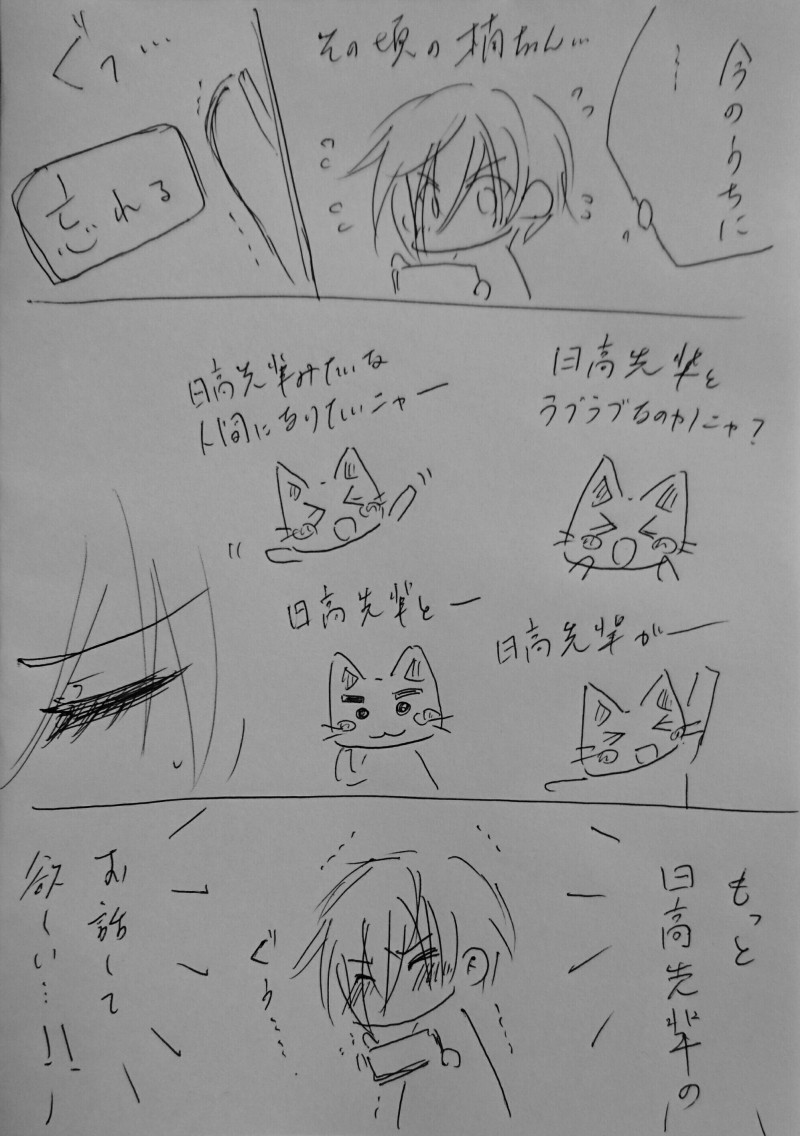 今のうちに
…
その頃の楠ちゃん…
ぐっ…
忘れる
日高先輩と
ラブラブなのかニャ？
日高先輩みたいな
人間になりたいニャー
日高先輩がー
日高先輩とー
もっと
日高先輩の
お話して
欲しい…!!
ぐぅ……